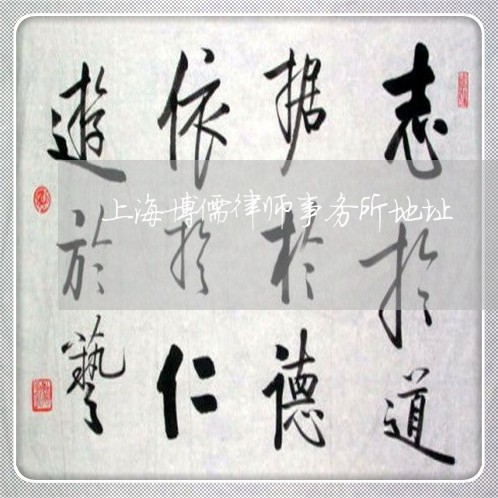 志於道
据於德
依於仁
遊於藝
上海博儒律师事务所地址